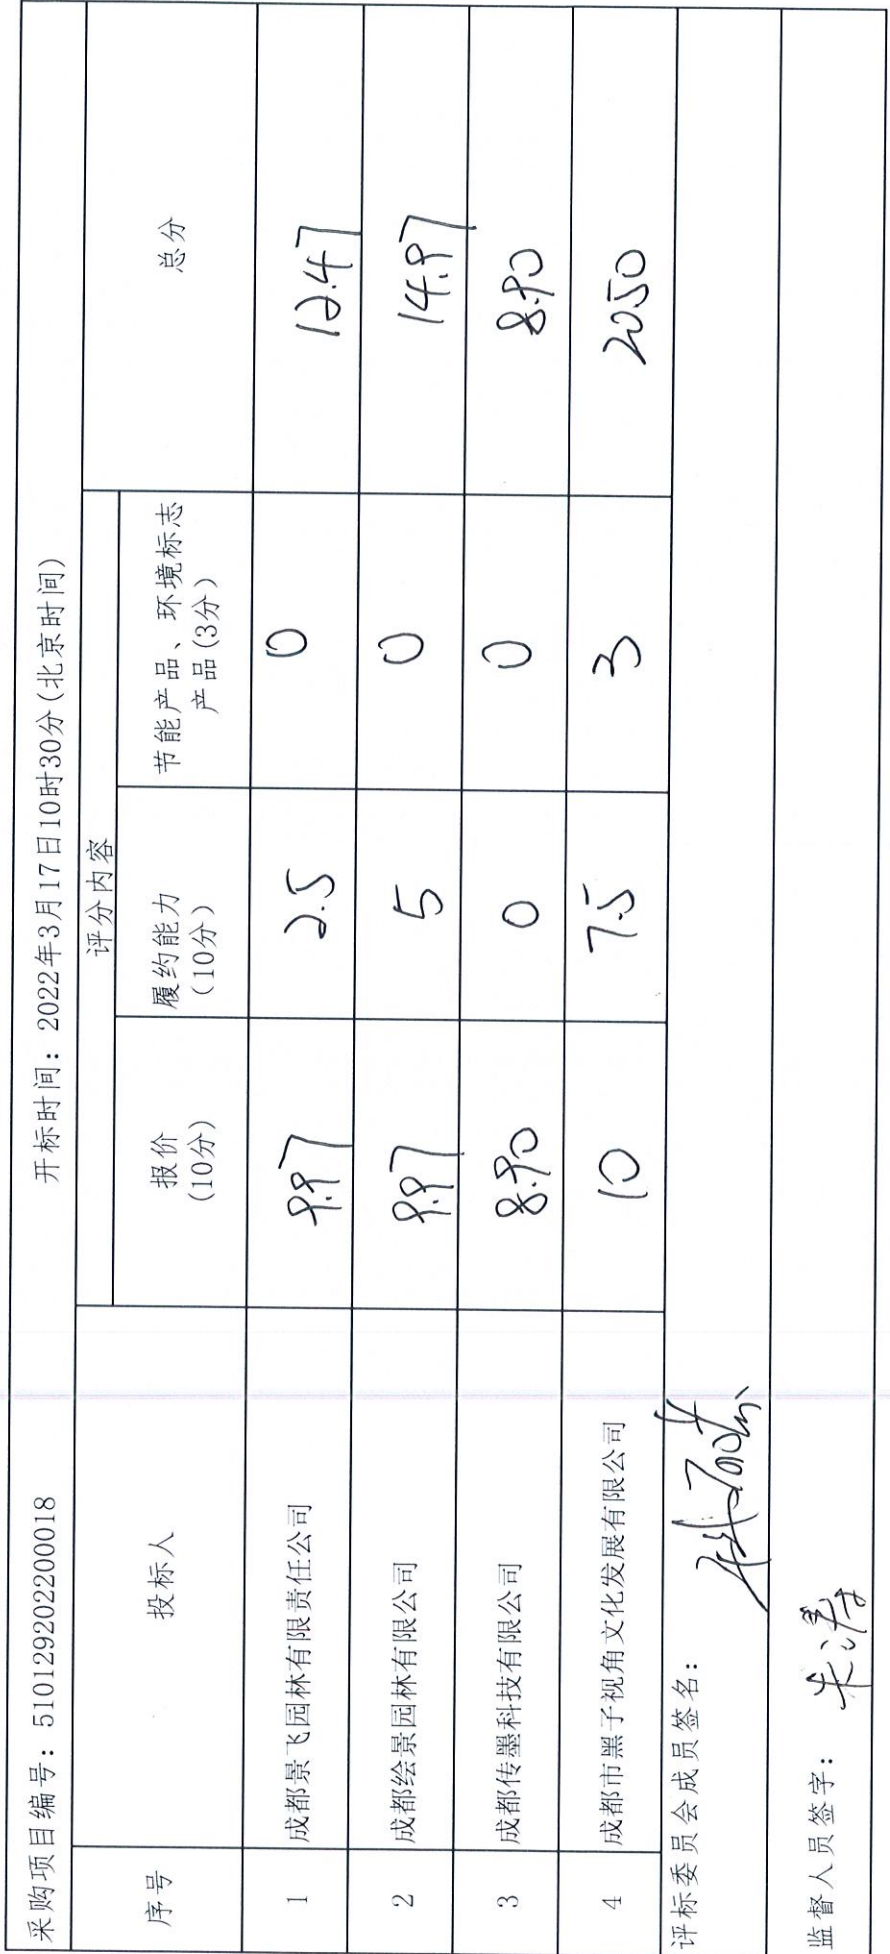 采购项目编号：510129202200018 开标时间：2022年3月17日10时30分(北京时间)
序号 投标人 评分内容 总分
报价 履约能力 节能产品、环境标志
(10分) (10分) 产品(3分)
1 成都景飞园林有限责任公司 9.97 2.5 0 12.47
2 成都绘景园林有限公司 9.97 5 0 14.97
3 成都传墨科技有限公司 8.90 0 0 8.90
4 成都市黑子视角文化发展有限公司 10 7.5 3 20.50
评标委员会成员签名：
监督人员签字：